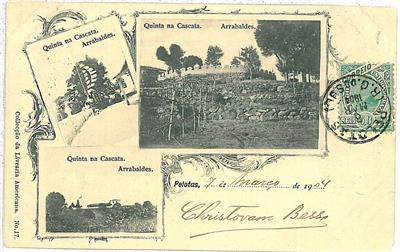 Quinta na Cascata.
Arrabaldes.
Quinta na Cascata. Arrabaldes.
Quinta na Cascata.
Arrabaldes.
Pelotas, 7 de Março de 1904
Christovam
Collecção da Livraria Americana. No. 17.